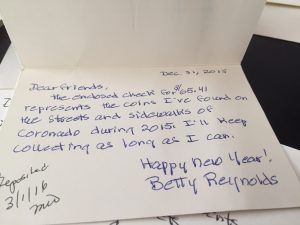 Dec 31, 2015
Dear friends,
the enclosed check for $65.41
represents the coins I've found on
the streets and sidewalks of
Coronado during 2015. I'll keep
collecting as long as I can.
Happy New Year!
Betty Reynolds
Deposited
3/1/16